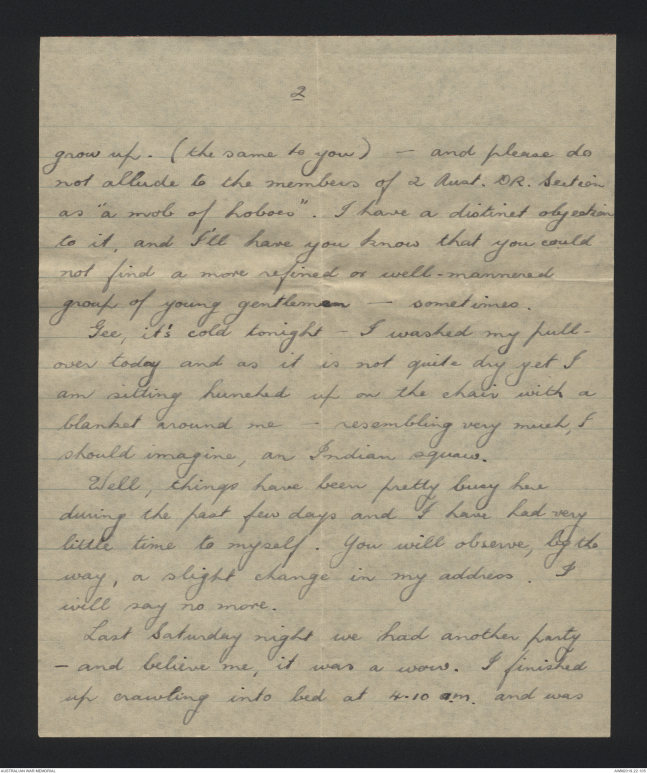 2
grow up. (the same to you) — and please do
not allude to the members of 2 Aust. DR. Section
as "a mob of hoboes". I have a distinct objection
to it, and I'll have you know that you could
not find a more refined or well-mannered
group of young gentlemen — sometimes.
Gee, it's cold tonight - I washed my pull-
over today and as it is not quite dry yet I
am sitting hunched up on the chair with a
blanket around me - resembling very much, I
should imagine, an Indian squaw.
Well, things have been pretty busy here
during the past few days and I have had very
little time to myself. You will observe, by the
way, a slight change in my address. I
will say no more.
Last Saturday night we had another party
- and believe me, it was a wow. I finished
up crawling into bed at 4.10 a.m. and was
AUSTRALIAN WAR MEMORIAL